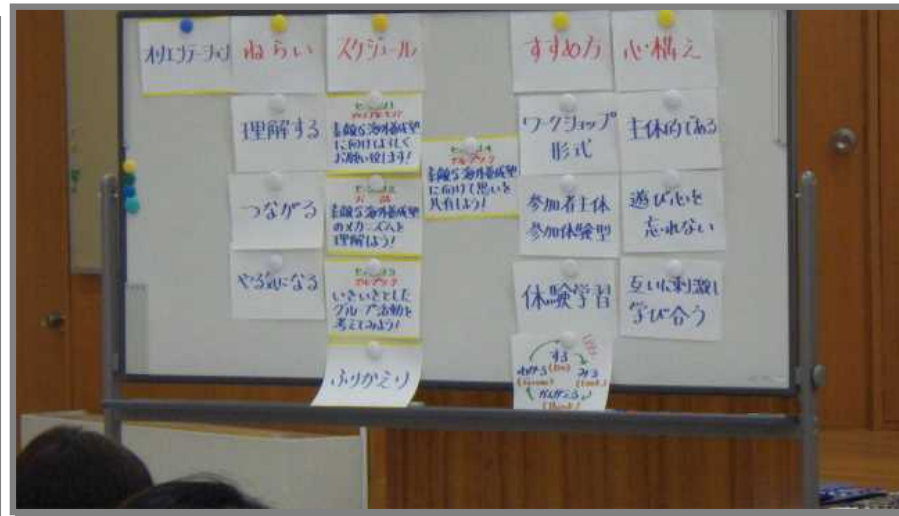 オリエンテーション
ねらい
理解する
つながる
やる気になる
スケジュール
素敵な海外養成塾
に向けてよろしく
お願い致します!
素敵な海外養成塾
のメカニズムを
理解しよう!
いきいきとした
グループ活動を
考えてみよう!
ふりかえり
素敵な海外養成塾
に向けて思いを
共有しよう!
すすめ方
ワークショップ
形式
参加者主体
参加体験型
体験学習
する
(Do)
みる
(Look)
かんがえる
(Think)
わかる
(Grow)
心構え
主体的である
遊び心を
忘れない
互いに刺激し
学び合う